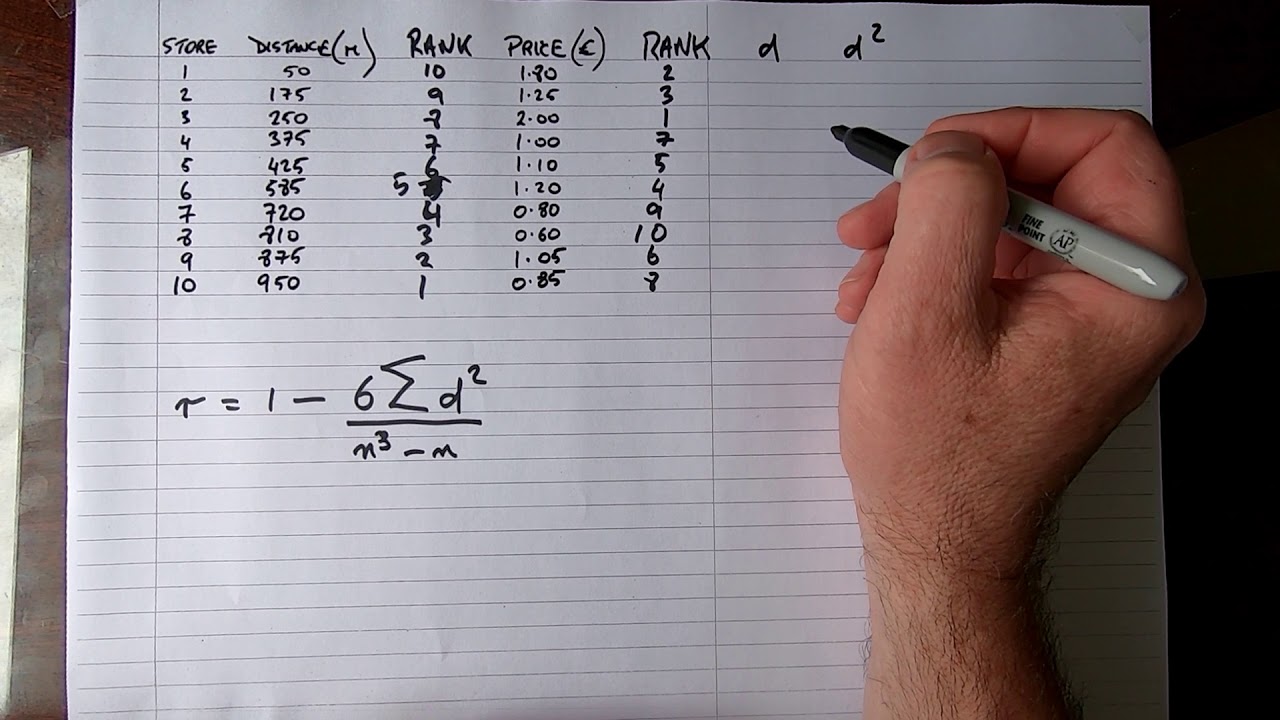 STORE DISTANCE(m) RANK PRICE(€) RANK d d²
1 50 10 1.80 2
2 175 9 1.25 3
3 250 8 2.00 1
4 375 7 1.00 7
5 425 6 1.10 5
6 585 5 1.20 4
7 720 4 0.80 9
8 810 3 0.60 10
9 875 2 1.05 6
10 950 1 0.85 8
r = 1 - 6∑d²
n³ - n
FINE
POINT
AP